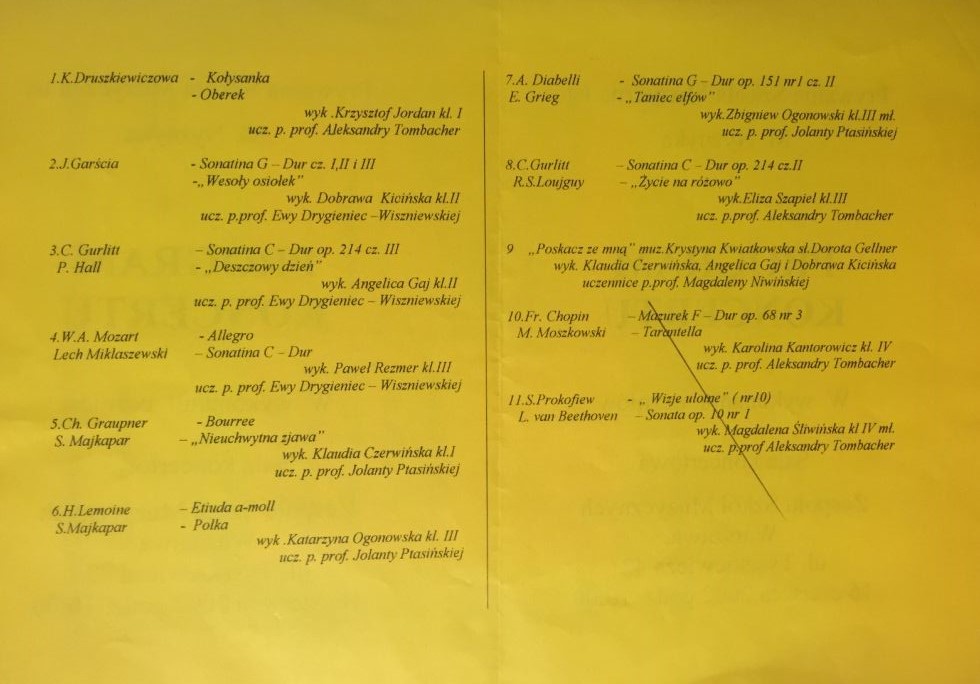 1.K.Druszkiewiczowa - Kołysanka
- Oberek
wyk .Krzysztof Jordan kl. I
ucz. p. prof. Aleksandry Tombacher
2.J.Garścia - Sonatina G – Dur cz. I,II i III
-„Wesoły osiołek”
wyk. Dobrawa Kicińska kl.II
ucz. p.prof. Ewy Drygieniec –Wiszniewskiej
3.C. Gurlitt – Sonatina C – Dur op. 214 cz. III
P. Hall - „Deszczowy dzień”
wyk. Angelica Gaj kl.II
ucz. p. prof. Ewy Drygieniec – Wiszniewskiej
4.W.A. Mozart - Allegro
Lech Miklaszewski – Sonatina C – Dur
wyk. Paweł Rezmer kl.III
ucz. p. prof. Ewy Drygieniec – Wiszniewskiej
5.Ch. Graupner - Bourree
S. Majkapar – „Nieuchwytna zjawa”
wyk. Klaudia Czerwińska kl.I
ucz. p. prof. Jolanty Ptasińskiej
6.H.Lemoine – Etiuda a-moll
S.Majkapar - Polka
wyk .Katarzyna Ogonowska kl. III
ucz. p. prof. Jolanty Ptasińskiej
7.A. Diabelli - Sonatina G – Dur op. 151 nr1 cz. II
E. Grieg - „Taniec elfów”
wyk.Zbigniew Ogonowski kl.III mł.
ucz. p. prof. Jolanty Ptasińskiej
8.C.Gurlitt – Sonatina C – Dur op. 214 cz.II
R.S.Loujguy – „Życie na różowo”
wyk.Eliza Szapiel kl.III
ucz. p. prof. Aleksandry Tombacher
9 „Poskacz ze mną” muz.Krystyna Kwiatkowska sł.Dorota Gellner
wyk. Klaudia Czerwińska, Angelica Gaj i Dobrawa Kicińska
uczennice p.prof. Magdaleny Niwińskiej
10.Fr. Chopin – Mazurek F – Dur op. 68 nr 3
M. Moszkowski – Tarantella
wyk. Karolina Kantorowicz kl. IV
ucz. p. prof. Aleksandry Tombacher
11.S.Prokofiew - „ Wizje ulotne” ( nr10)
L. van Beethoven – Sonata op. 10 nr 1
wyk. Magdalena Śliwińska kl IV mł.
ucz. p.prof Aleksandry Tombacher